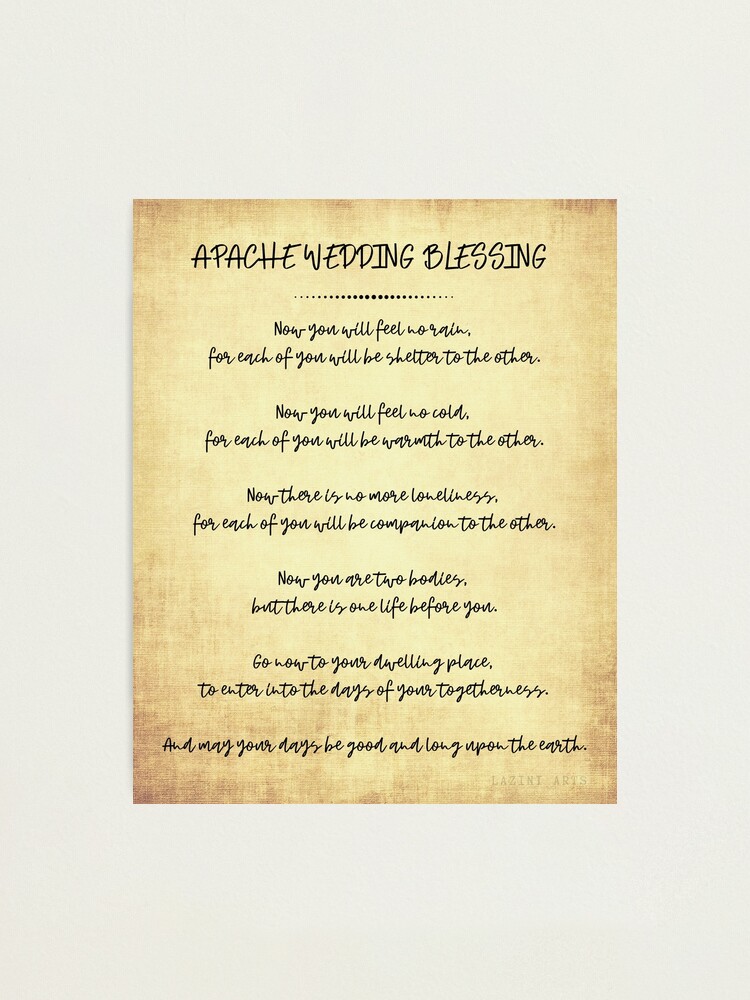 APACHE WEDDING BLESSING
Now you will feel no rain,
for each of you will be shelter to the other.
Now you will feel no cold,
for each of you will be warmth to the other.
Now there is no more loneliness,
for each of you will be companion to the other.
Now you are two bodies,
but there is one life before you.
Go now to your dwelling place,
to enter into the days of your togetherness.
And may your days be good and long upon the earth.
LAZINI ARTS